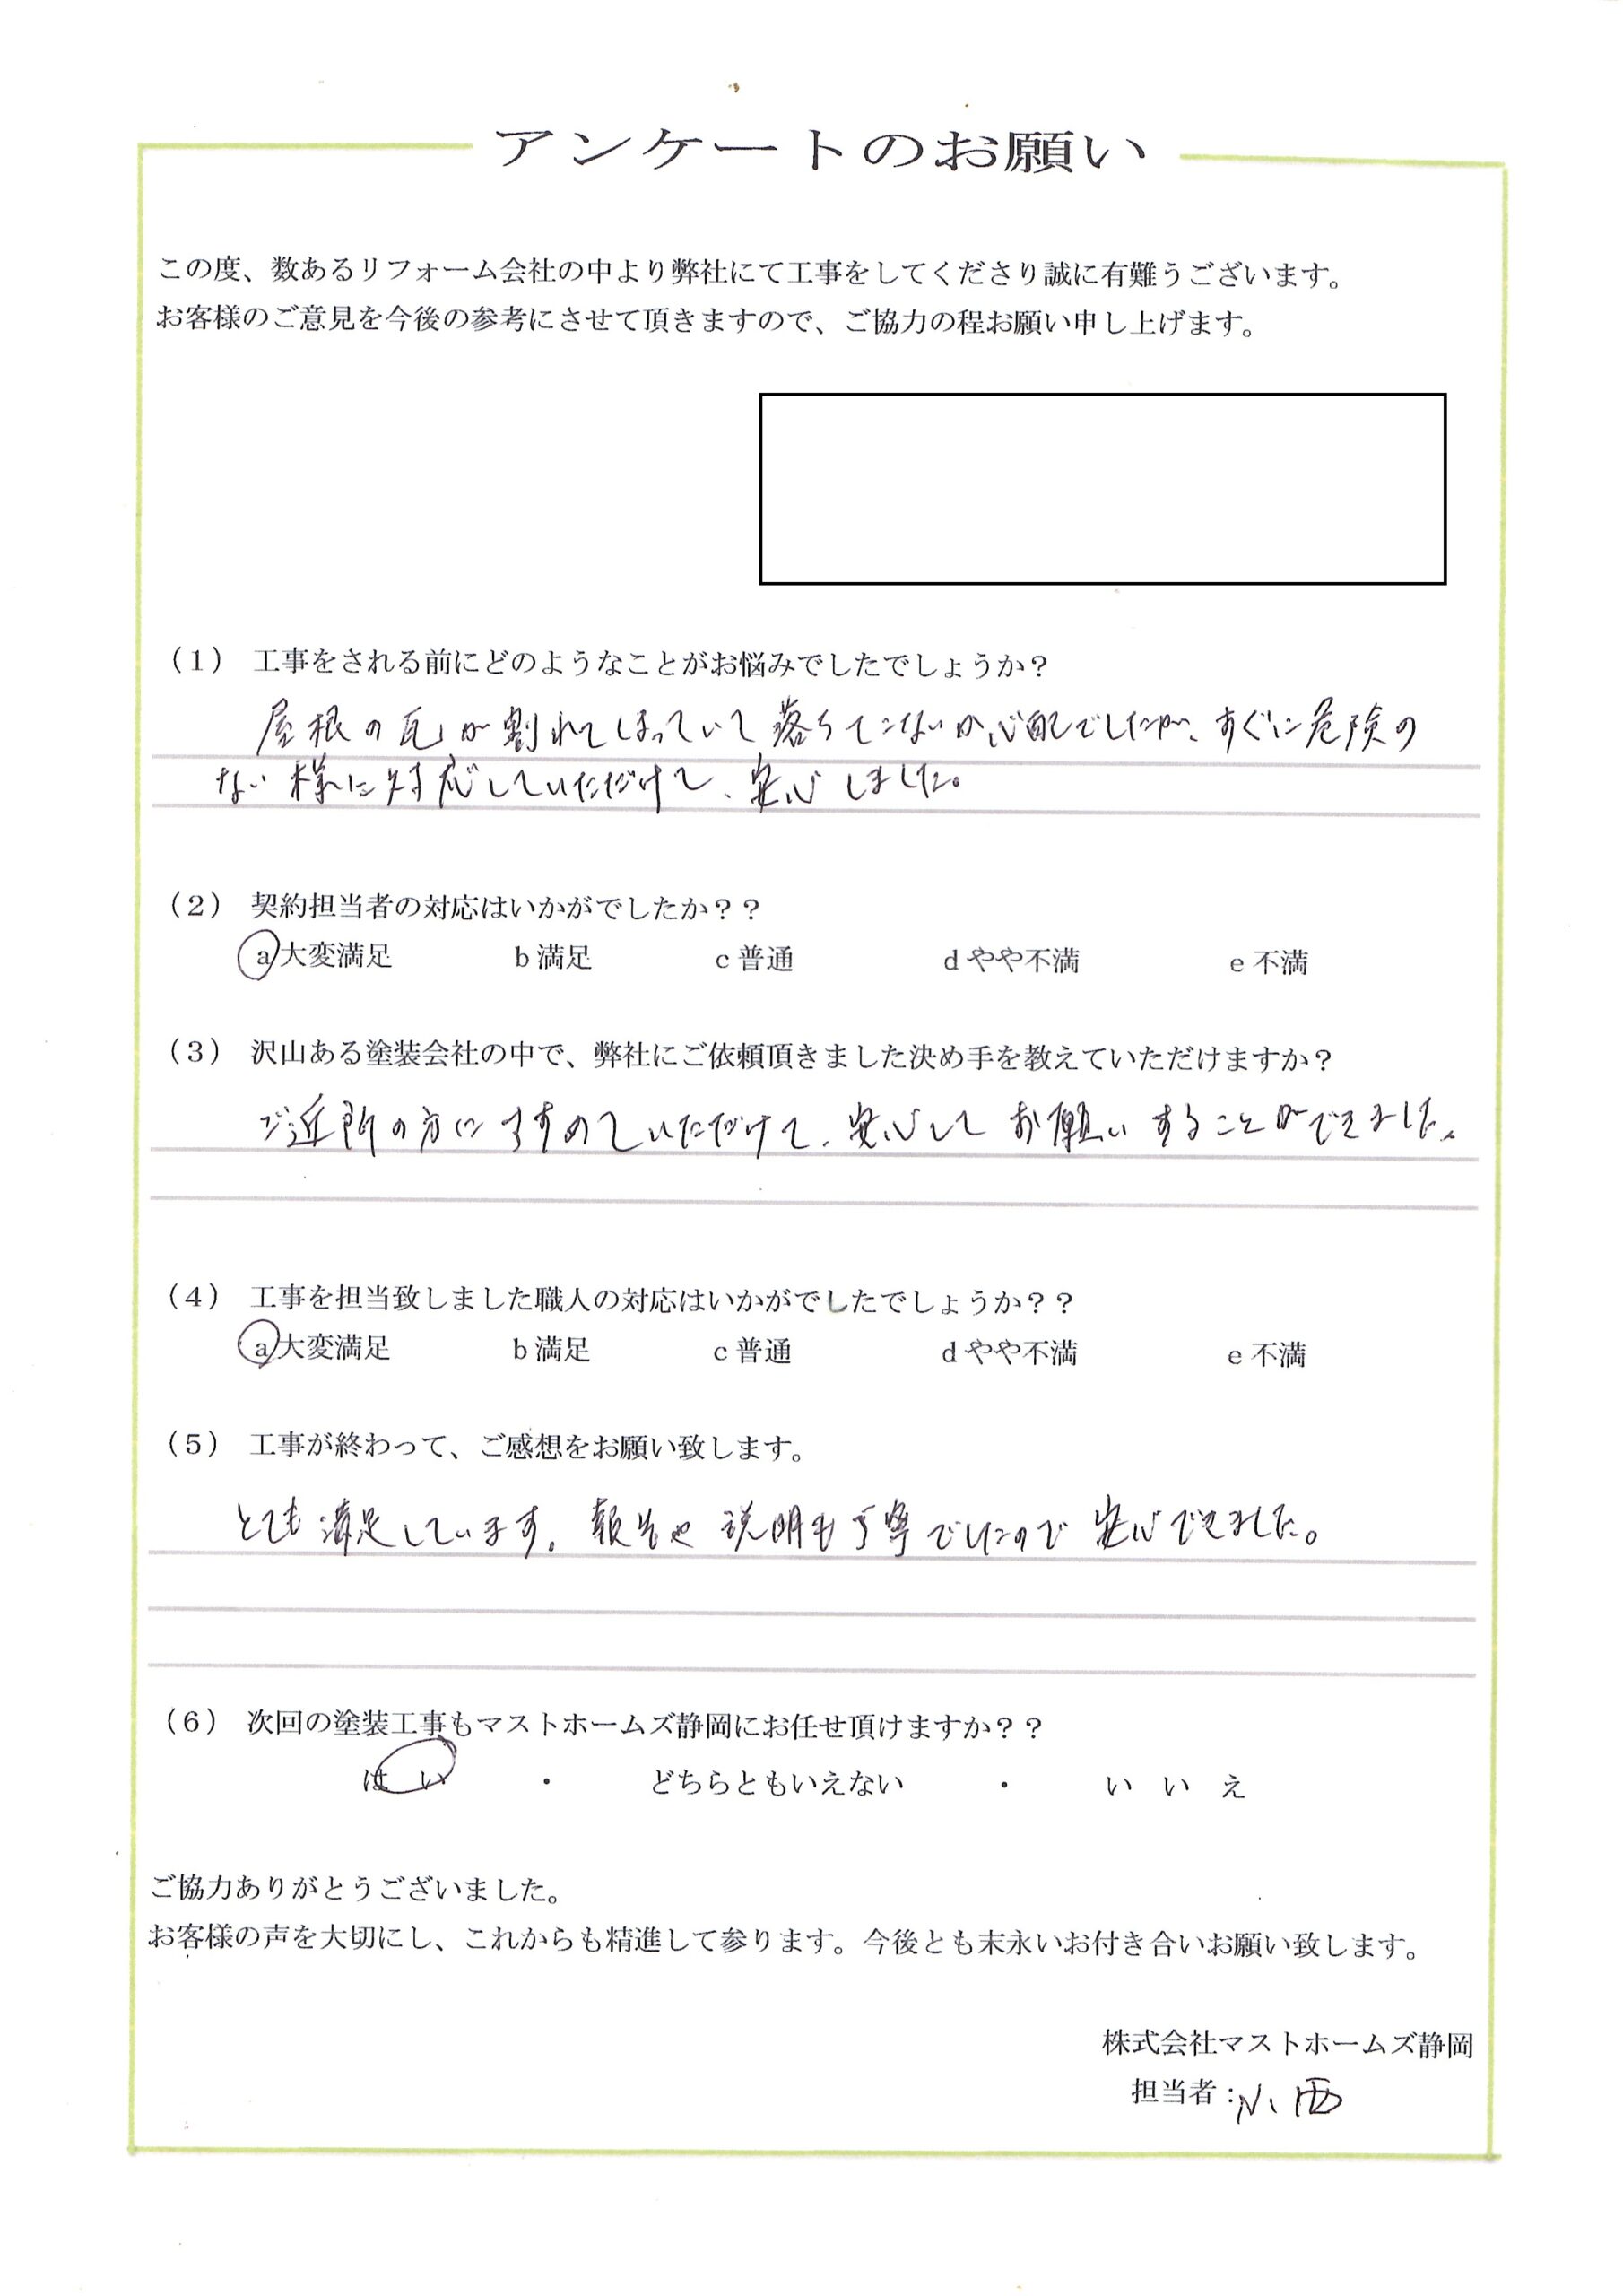 アンケートのお願い
この度、数あるリフォーム会社の中より弊社にて工事をしてくださり誠に有難うございます。
お客様のご意見を今後の参考にさせて頂きますので、ご協力の程お願い申し上げます。
（1） 工事をされる前にどのようなことがお悩みでしたでしょうか？
屋根の瓦が割れてしまっていて落ちてこないか心配でしたが、すぐに危険の
ない様に対応していただけて、安心しました。
（2） 契約担当者の対応はいかがでしたか？？
a 大変満足 b 満足 c 普通 d やや不満 e 不満
（3） 沢山ある塗装会社の中で、弊社にご依頼頂きました決め手を教えていただけますか？
ご近所の方にすすめていただけて、安心してお願いすることができました。
（4） 工事を担当致しました職人の対応はいかがでしたでしょうか？？
a 大変満足 b 満足 c 普通 d やや不満 e 不満
（5） 工事が終わって、ご感想をお願い致します。
とても満足しています。報告や説明も丁寧でしたので安心できました。
（6） 次回の塗装工事もマストホームズ静岡にお任せ頂けますか？？
はい ・ どちらともいえない ・ いいえ
ご協力ありがとうございました。
お客様の声を大切にし、これからも精進して参ります。今後とも末永いお付き合いお願い致します。
株式会社マストホームズ静岡
担当者：小西